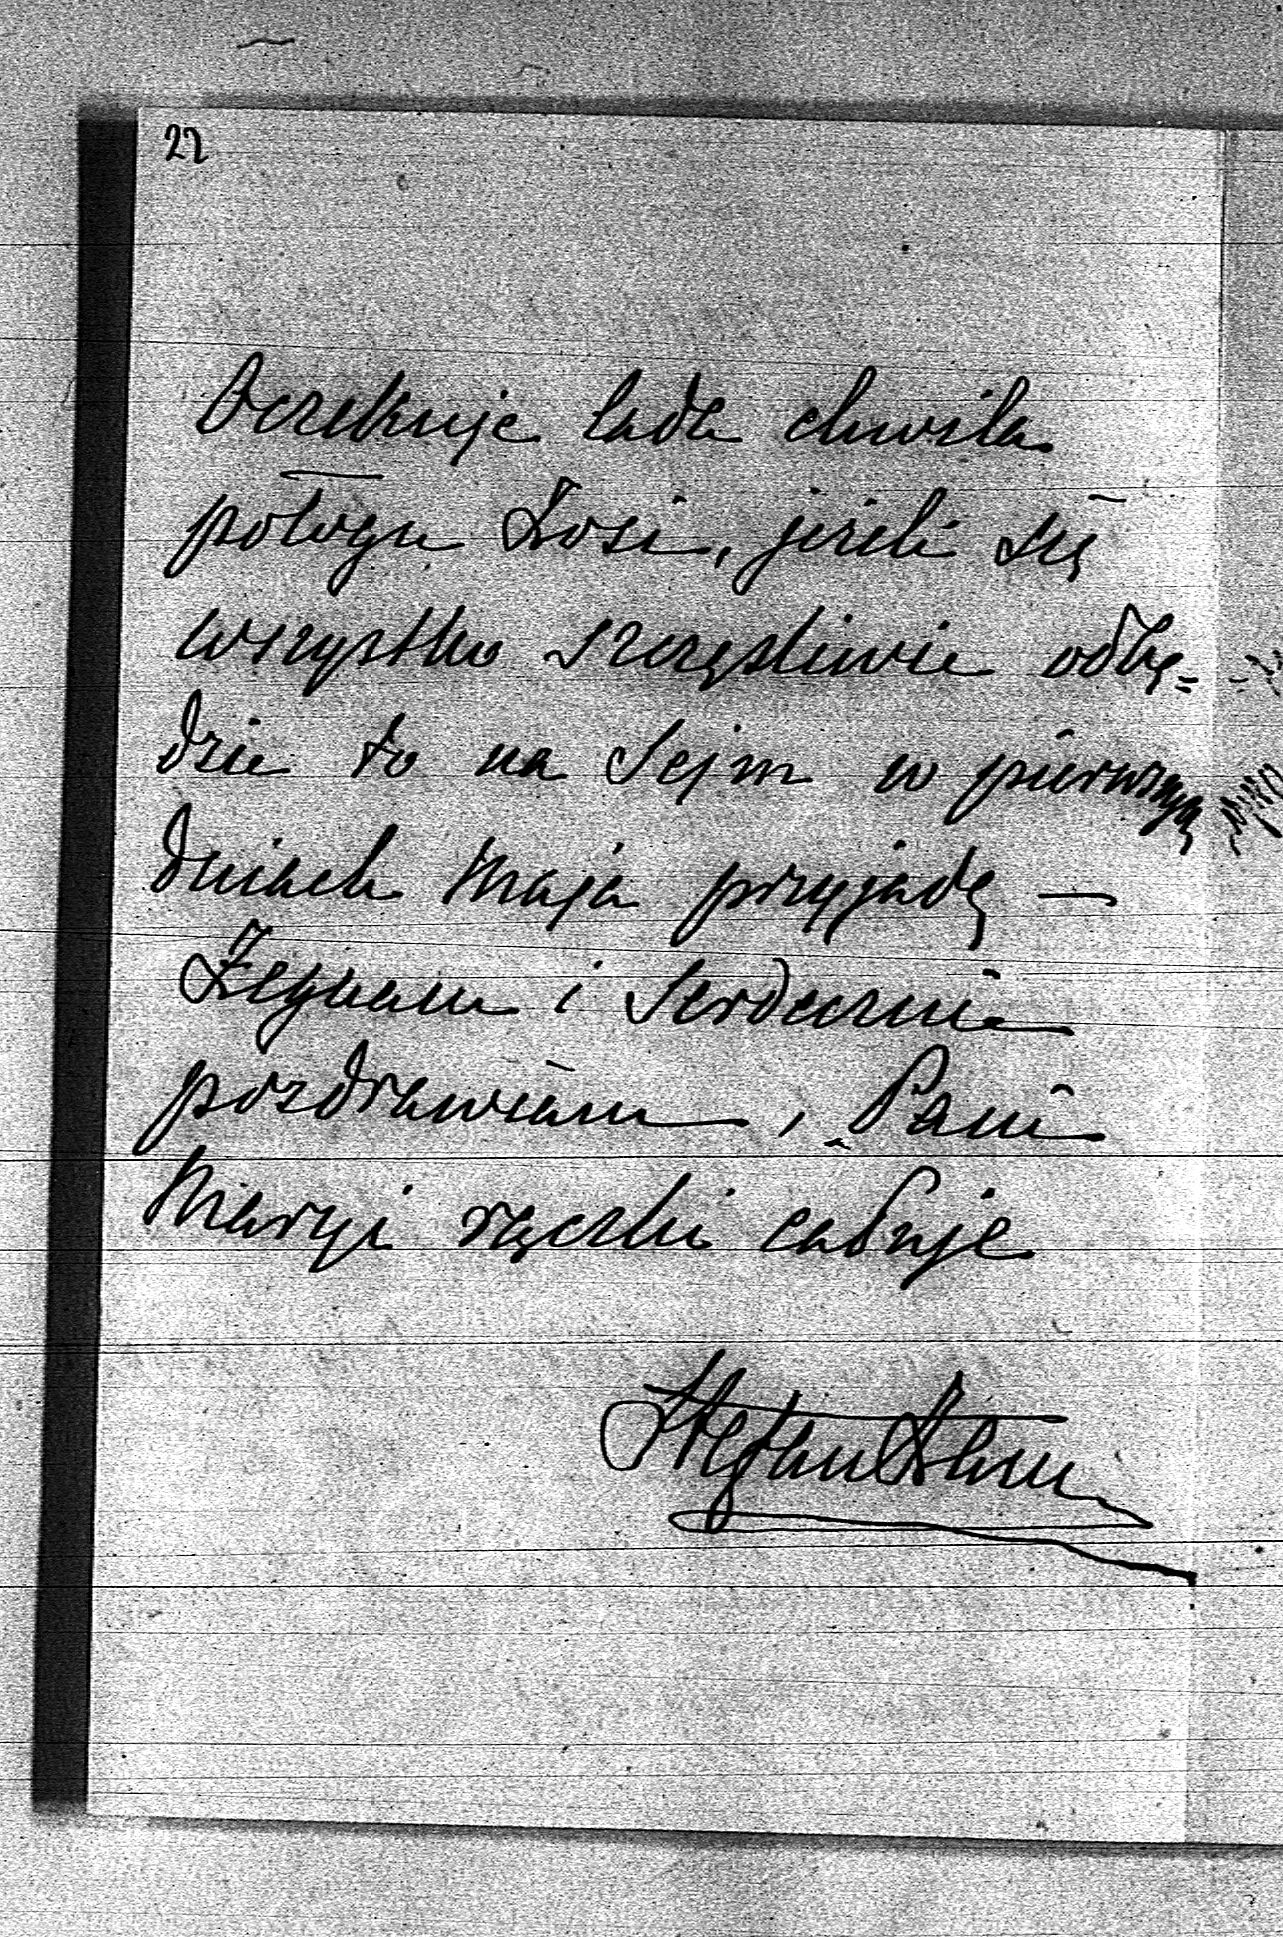 22
Oczekuje lada chwila
połogu Zosi, jeżeli się
wszystko szczęśliwie odbę=
dzie to na Sejm w pierwszych
dniach Maja przyjadę —
Żegnam i serdecznie
pozdrawiam, a Pani
Maryi rączki całuje
Stefan